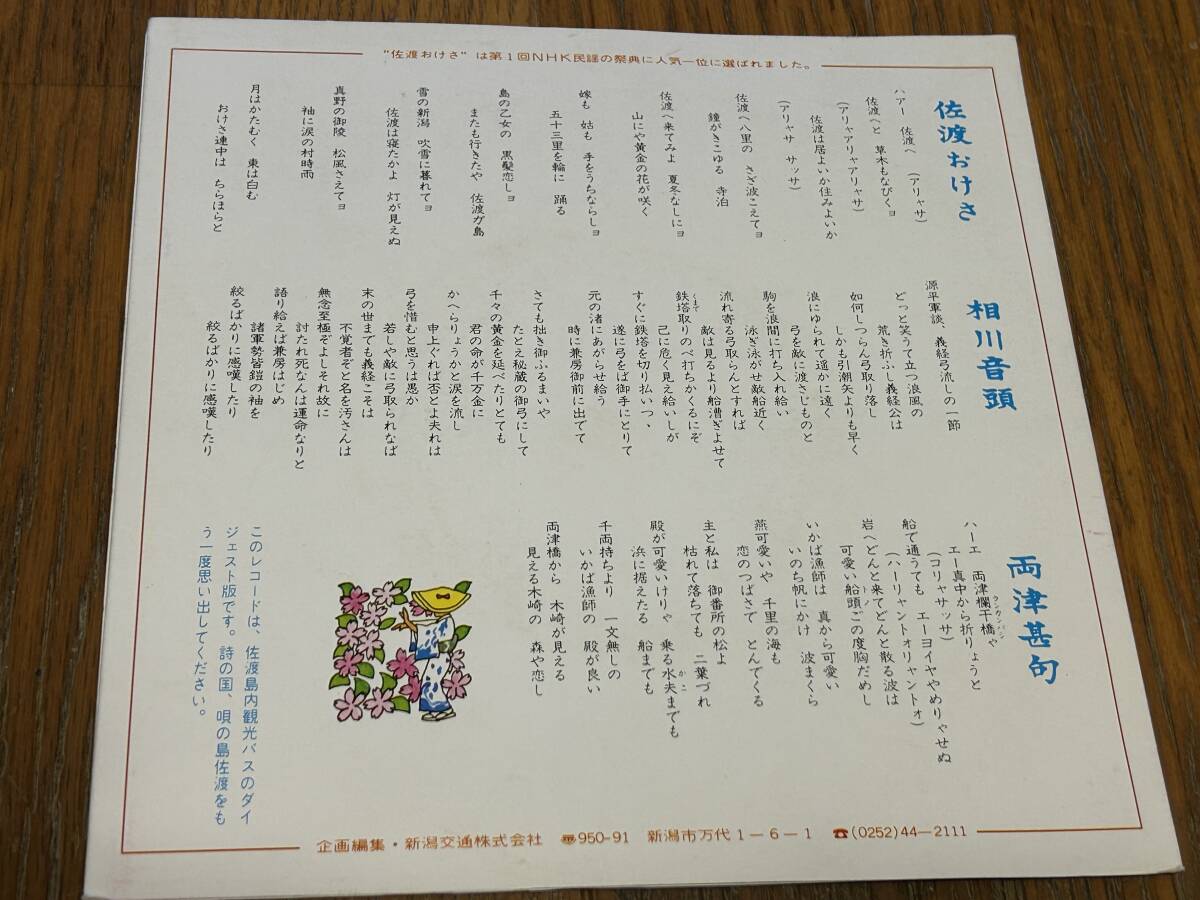 "佐渡おけさ"は第1回NHK民謡の祭典に人気一位に選ばれました。
佐渡おけさ
ハアー　佐渡へ　(アリャサ)
佐渡へと　草木もなびくヨ
(アリャアリャアリャサ)
佐渡は居よいか住みよいか
(アリャサ　サッサ)
佐渡へ八里の　さざ波こえてヨ
鐘がきこゆる　寺泊
佐渡へ来てみよ　夏冬なしにヨ
山にや黄金の花が咲く
嫁も　姑も　手をうちならしヨ
五十三里を輪に　踊る
島の乙女の　黒髪恋しヨ
またも行きたや　佐渡ガ島
雪の新潟　吹雪に暮れてヨ
佐渡は寝たかよ　灯が見えぬ
真野の御陵　松風さえてヨ
袖に涙の村時雨
月はかたむく　東は白む
おけさ連中は　ちらほらと
相川音頭
源平軍談、義経弓流しの一節
どっと笑うて立つ浪風の
荒き折ふし義経公は
如何しつらん弓取り落し
しかも引潮矢よりも早く
浪にゆられて遥かに遠く
弓を敵に渡さじものと
駒を浪間に打ち入れ給い
泳ぎ泳がせ敵船近く
流れ寄る弓取らんとすれば
敵は見るより船漕ぎよせて
鉄塔取りのべ打ちかくるにぞ
くまで
己に危く見え給いしが
すぐに鉄塔を切り払いつゝ
遂に弓をば御手にとりて
元の渚にあがらせ給う
時に兼房御前に出でて
さても拙き御ふるまいや
たとえ秘蔵の御弓にして
千々の黄金を延べたりとても
君の命が千万金に
かへらりょうかと涙を流し
申上ぐれば否とよ夫れは
弓を惜むと思うは愚か
若しや敵に弓取られなば
末の世までも義経こそは
不覚者ぞと名を汚さんは
無念至極ぞよしそれ故に
討たれ死なんは運命なりと
語り給えば兼房はじめ
諸軍勢皆鎧の袖を
絞るばかりに感嘆したり
絞るばかりに感嘆したり
両津甚句
ハーエ　両津欄干橋ゃ
ランカンバシ
エー真中から折りょうと
(コリャサッサ)
船で通うても　エーヨイヤやめりゃせぬ
(ハーリャントオリャントォ)
岩へどんと来てどんと散る波は
可愛い船頭ごの度胸だめし
いかば漁師は　真から可愛い
いのち帆にかけ　波まくら
燕可愛いや　千里の海も
恋のつばさで　とんでくる
主と私は　御番所の松よ
枯れて落ちても　二葉づれ
殿が可愛いけりゃ　乗る水夫までも
かこ
浜に据えたる　船までも
千両持ちより　一文無しの
いかば漁師の　殿が良い
両津橋から　木崎が見える
見える木崎の　森や恋し
このレコードは、佐渡島内観光バスのダイ
ジェスト版です。詩の国、唄の島佐渡をも
う一度思い出してください。
企画編集・新潟交通株式会社　〠950-91　新潟市万代1－6－1　☎(0252)44－2111